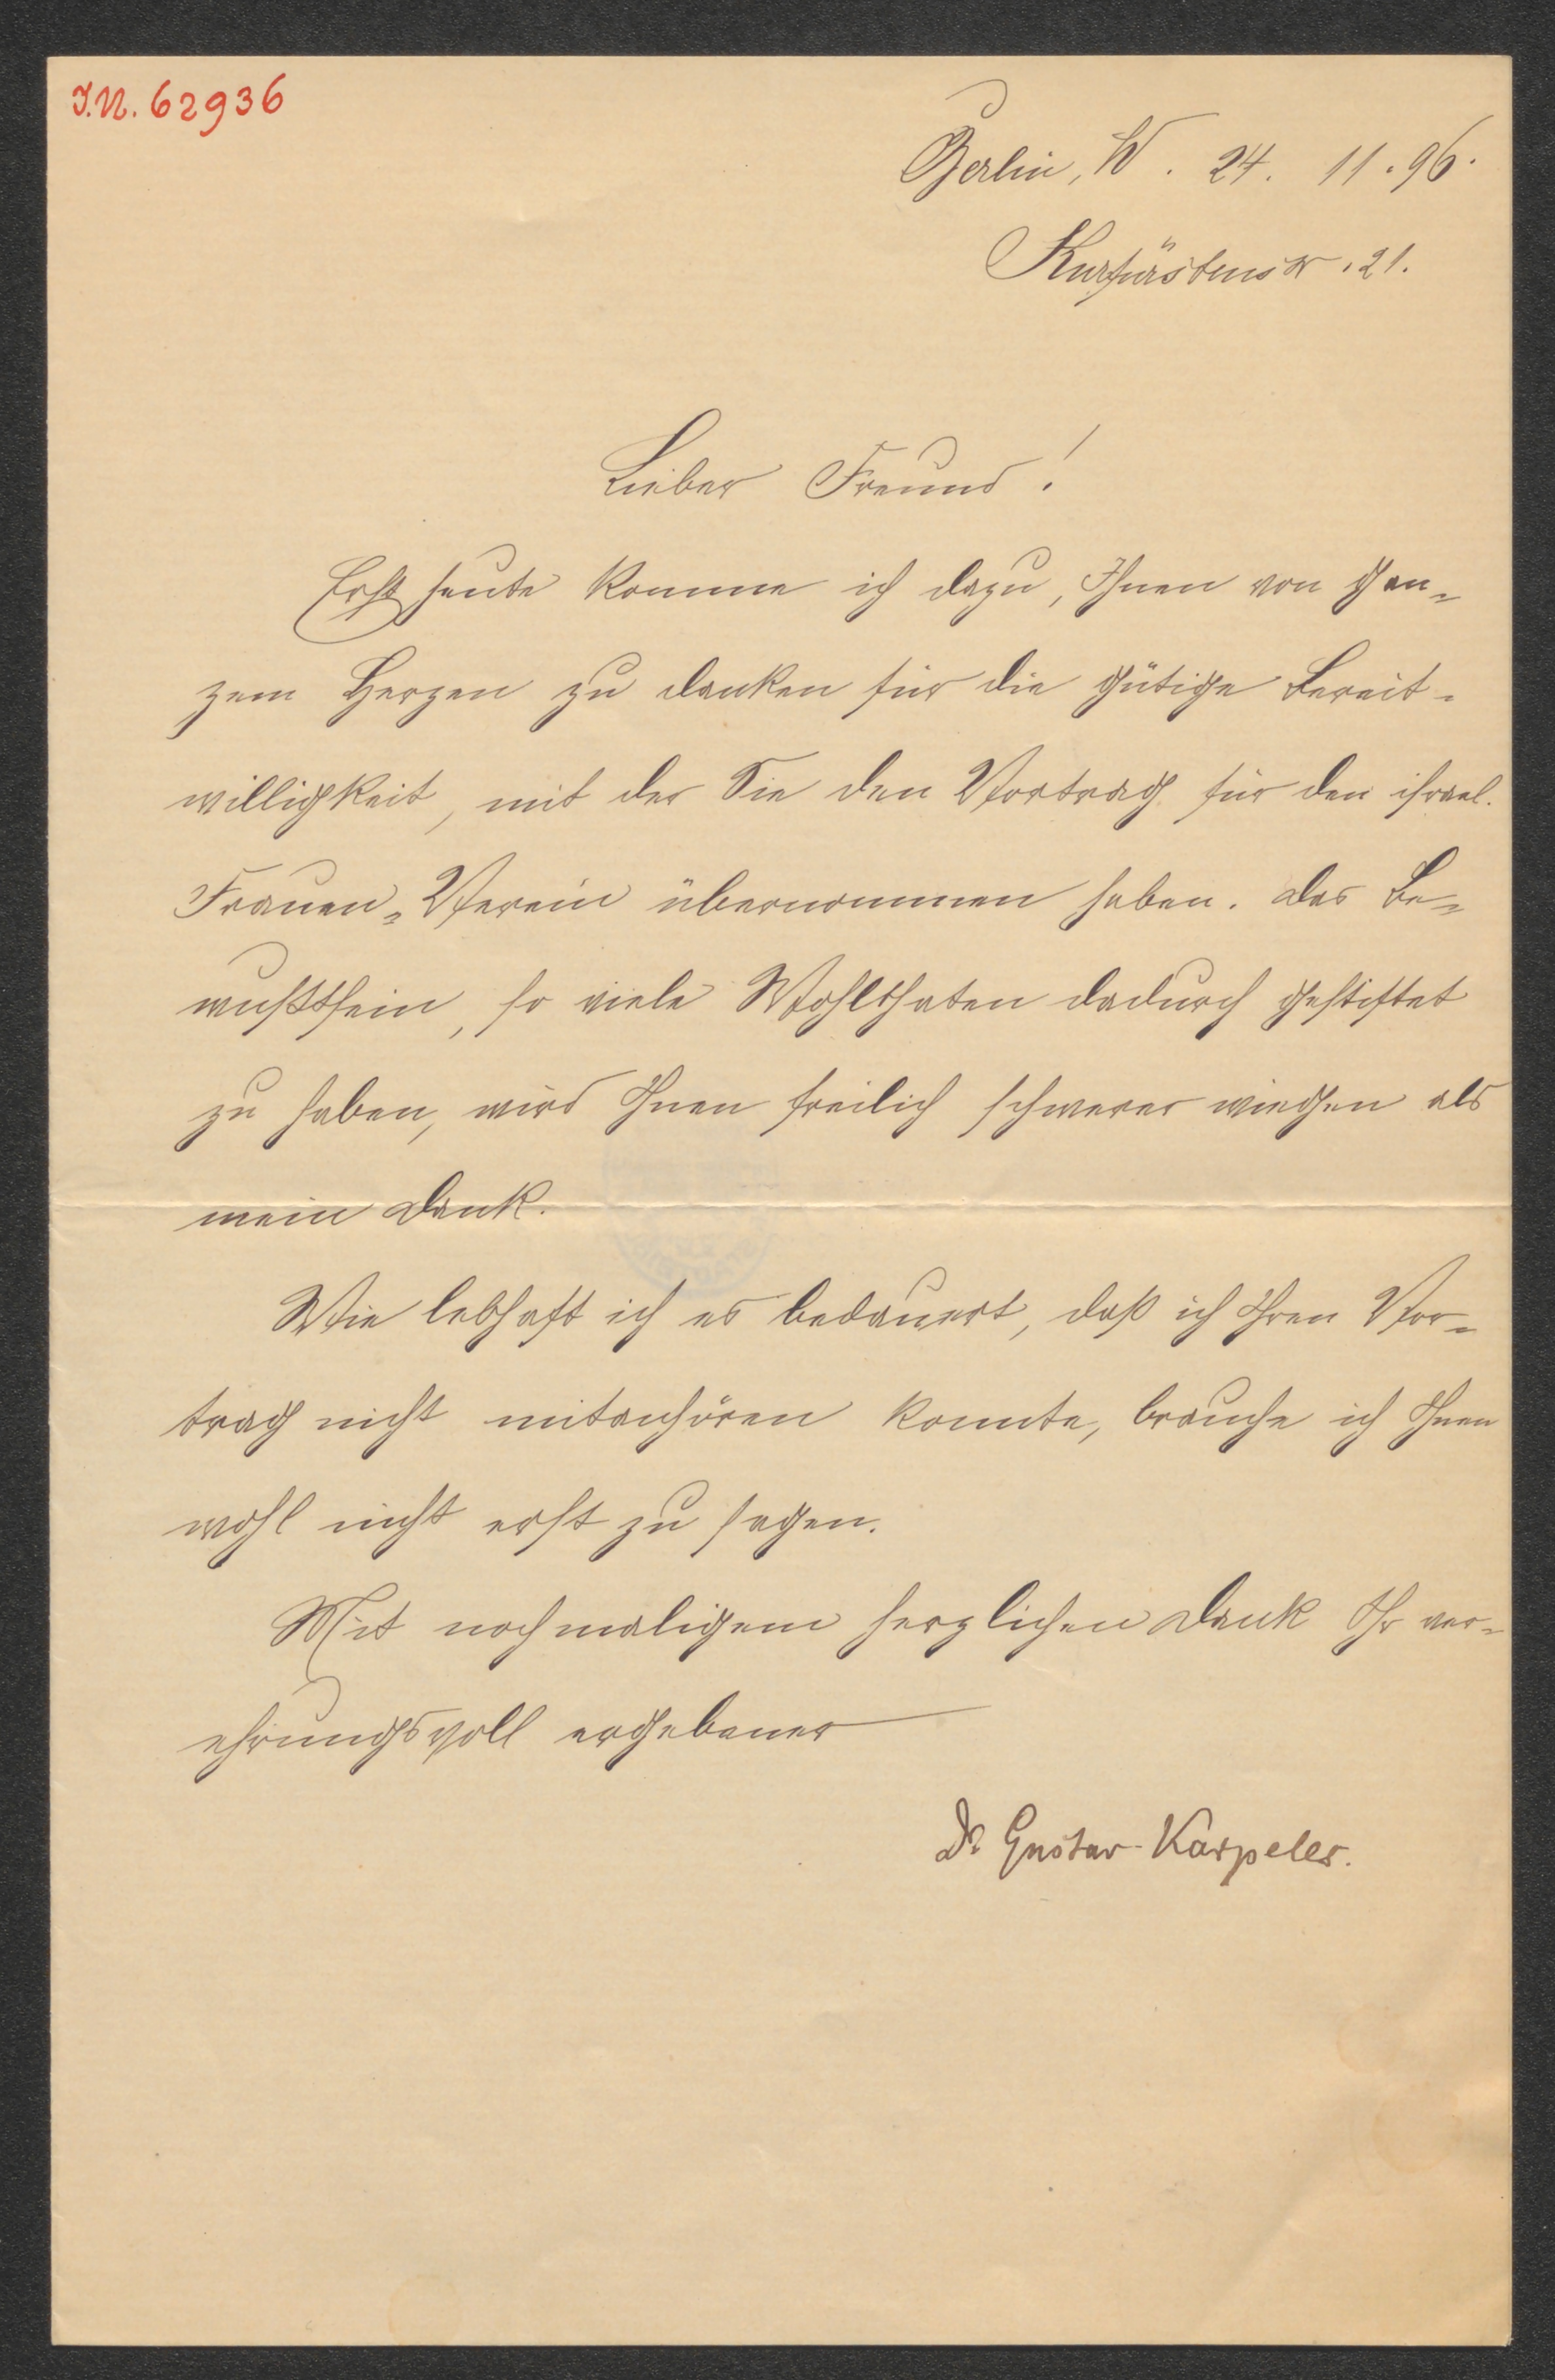 I.N. 62936
Berlin, W. 24. 11. 96.
Kurfürstenstr. 21.
Lieber Freund!
Erst heute komme ich dazu, Ihnen von gan-
zem Herzen zu danken für die gütige Bereit-
willigkeit, mit der Sie den Vortrag für den israel.
Frauen-Verein übernommen haben. Das Be-
wußtsein, so viele Wohlthaten dadurch gestiftet
zu haben, wird Ihnen freilich schwerer wiegen als
mein Dank.
Wie lebhaft ich es bedauert, daß ich Ihren Vor-
trag nicht mitanhören konnte, brauche ich Ihnen
wohl nicht erst zu sagen.
Mit nochmaligem herzlichen Dank Ihr ver-
ehrungsvoll ergebener
Dr Gustav Karpeles.